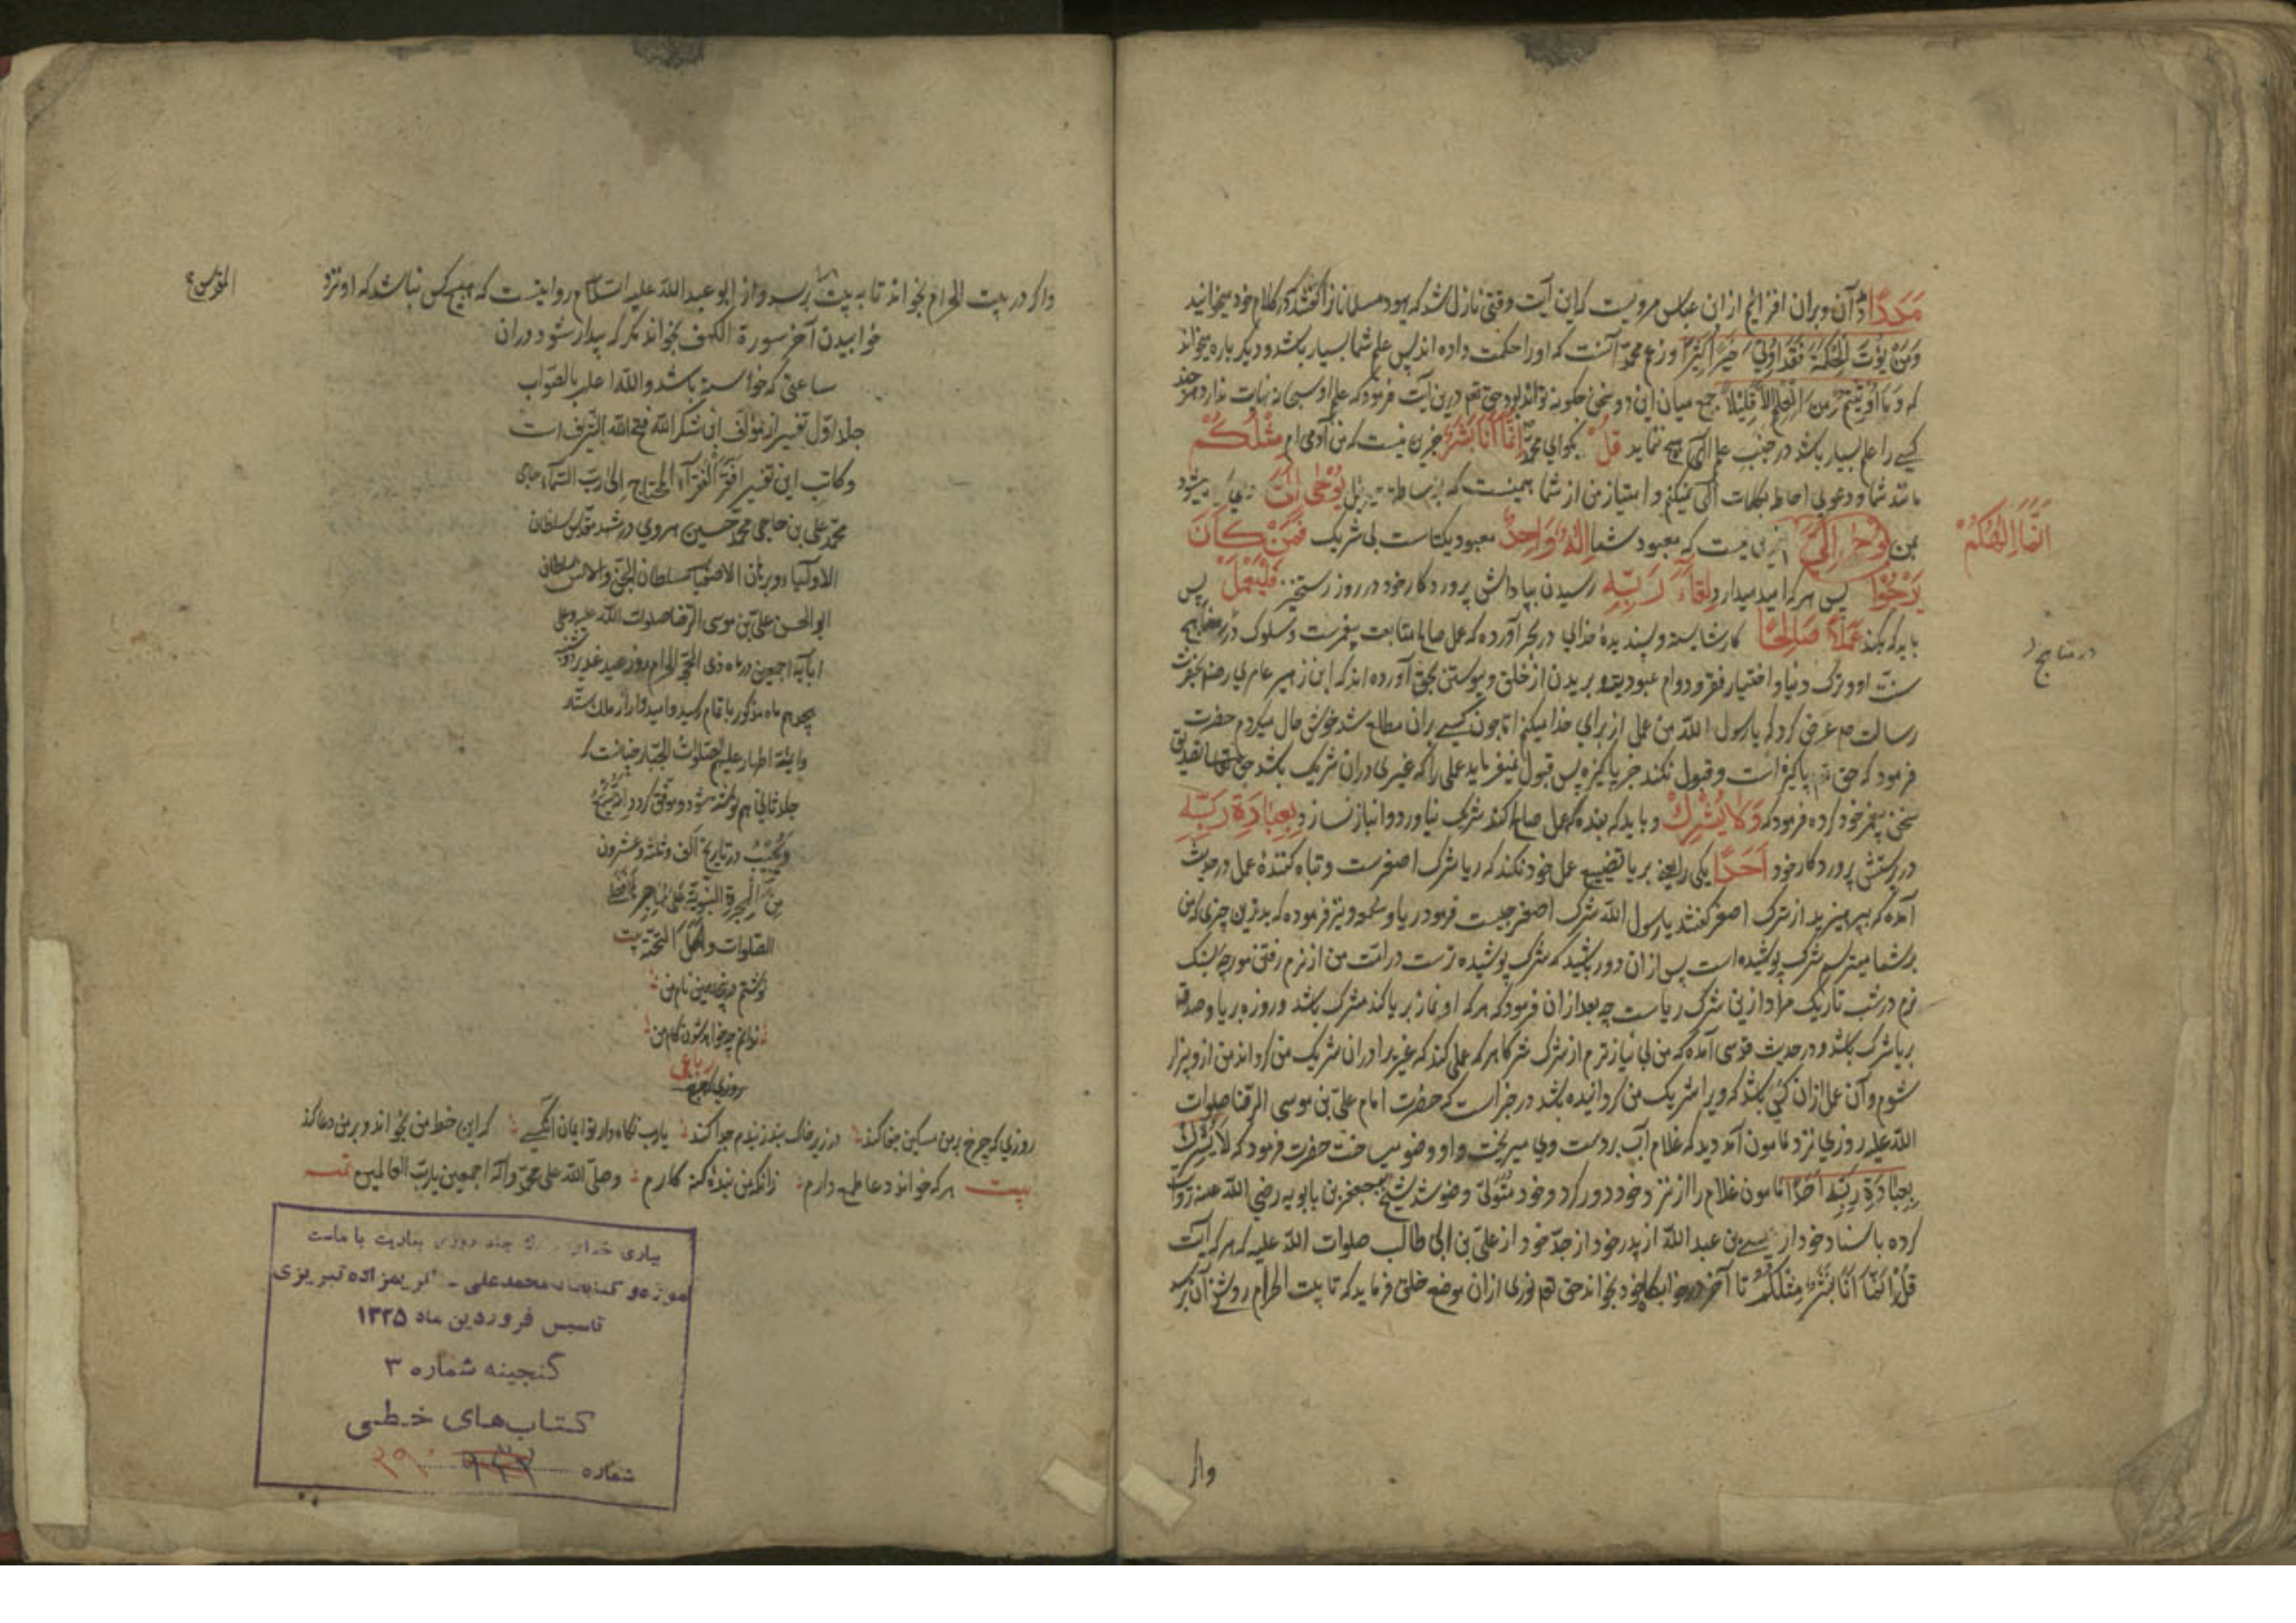 مَدَدًا آن و بران افزائیم از ابن عباس مرویست که این آیت وقتی نازل شد که یهود مسلمانانرا گفتند که در کلام خود میخوانید
وَمَنْ يُؤْتَ الْحِكْمَةَ فَقَدْ أُوتِيَ خَيْرًا كَثِيرًا و زعم محمد آنست که او را حکمت داده اند پس علم شما بسیار باشد و دیگر باره میخواند
که وَمَا أُوتِيتُمْ مِنَ الْعِلْمِ إِلَّا قَلِيلًا جمع میان این دو سخن چگونه تواند بود حق تعم درین آیت فرمود که علم او سبحانه نهایت ندارد هرچند
کسی را علم بسیار باشد در جنب علم الهی هیچ ننماید قُلْ بگو ای محمد إِنَّمَا أَنَا بَشَرٌ جزین نیست که من آدمی ام مِثْلُكُمْ
مانند شما و دعوی احاطه بکلمات الهی نمیکنم و امتیاز من از شما همینست که يُوحَى إِلَيَّ
بمن إِنَّمَا إِلَهُكُمْ جزین نیست که معبود شما إِلَهٌ وَاحِدٌ معبود یکتاست بی شریک فَمَنْ كَانَ
يَرْجُوا پس هر که امید میدارد لِقَاءَ رَبِّهِ رسیدن بپاداش پروردگار خود در روز رستخیز فَلْيَعْمَلْ پس
باید که بکند عَمَلًا صَالِحًا کار شایسته و پسندیدهٔ خدای در بحر آورده که عمل صالح متابعت پیغمبرست و سلوک در
سنت او و ترک دنیا و اختیار فقر و دوام عبودیت و بریدن از خلق و پیوستن بحق آورده اند که ابن زهیر عامری رضه بحضرت
رسالت صم عرض کرد که یا رسول الله من عمل از برای خدا میکنم اما چون کسی بران مطلع شد خوش حال میکردم حضرت
فرمود که حق تعم پاکیزه است و قبول نکند جز پاکیزه پس قبول نمیفرماید عملی را که غیری دران شریک باشد حق تعالی تصدیق
سخن پیغمبر خود کرده فرمود که وَلَا يُشْرِكْ و باید که بنده که عمل صالح کند شریک نیاورد و انباز نسازد بِعِبَادَةِ رَبِّهِ
در پرستش پروردگار خود أَحَدًا یکی را یعنی بریا تضییع عمل خود نکند که ریا شرک اصغرست و تباه کنندهٔ عمل در حدیث
آمده که بپرهیزید از شرک اصغر گفتند یا رسول الله شرک اصغر چیست فرمود ریا و سمعه و نیز فرموده که بدترین چیزی که من
بر شما میترسم شرک پوشیده است پس ازان دور باشید که شرک پوشیده ترست در امت من از نرم رفتن مورچه بسنگ
نرم در شب تاریک مراد ازین شرک ریاست چه بعد ازان فرمود که هر که او نماز بریا کند مشرک باشد و روزه بریا و صدقه
بریا شرک باشد و در حدیث قدسی آمده که من بی نیازترم از شرک شرکا هر که عملی کند که غیر مرا دران شریک من گرداند من ازو بیزار
شوم و آن عمل ازان کسی باشد که ویرا شریک من گردانیده باشد در خبر است که حضرت امام علی بن موسی الرضا صلوات
الله علیه روزی نزد مامون آمد دید که غلام آب بر دست وی میریخت و او وضو میساخت حضرت فرمود که لَا يُشْرِكْ
بِعِبَادَةِ رَبِّهِ أَحَدًا مامون غلام را از نزد خود دور کرد و خود متولی وضو شد شیخ جعفر بن بابویه رضی الله عنه روایت
کرده باسناد خود از عیسی بن عبدالله از پدر خود از جد خود از علی بن ابی طالب صلوات الله علیه که هر که آیت
قُلْ إِنَّمَا أَنَا بَشَرٌ مِثْلُكُمْ تا آخر در خوابگاه خود بخواند حق تعم نوری ازان موضع خلق فرماید که تا بیت الحرام روشنی آن برسد
إِنَّمَا إِلَهُكُمْ
در منابع
واگر
واگر در بیت الحرام بخواند تا به بیت برسد و از ابو عبدالله علیه السلام روایتست که هیچ کس نباشد که او نزد
المقدس
خوابیدن آخر سورة الکهف بخواند مگر که بیدار شود دران
ساعتی که خواسته باشد والله اعلم بالصواب
جلد اول تفسیر از مؤلف ابن شکر الله فتح الله الشریف است
و کاتب این تفسیر افقر الفقرآء المحتاج الی رب السمآء حاجی
محمد علی بن حاجی محمد حسین هروی در مشهد مقدس سلطان
الاولیاء و برهان الاصفیا سلطان الجن والانس سلطان
ابو الحسن علی بن موسی الرضا صلوات الله علیه وعلی
ابآئه اجمعین در ماه ذی الحجة الحرام روز عید غدیر
هیجدهم ماه مذکور باتمام رسید و امیدوار از ملک ستار
و ایمه اطهار علیهم صلوات الجبار چنانست که
جلد ثانی هم نوشته شود و موفق گردد
ویجیب در تاریخ الف وثلثه وعشرون
من الهجرة النبویة علی مهاجرها افضل
الصلوات واکمل التحیة بیت
نوشتم
ندانم چه خواهد شدن کام من
رباعی
روزی که چرخ
روزی که چرخ بر من مسکین جفا کند در زیر خاک بند ز بندم جدا کند یارب نگاه دار تو ایمان آنکسی که این خط من بخواند و بر من دعا کند
بیت هر که خواند دعا طمع دارم زانکه من بندهٔ گنه کارم وصلی الله علی محمد واله اجمعین یا رب العالمین تمت
بیاری خدا چند روزی بیادیت با ماست
موزه و کتابخانه محمدعلی - کریمزاده تبریزی
تاسیس فروردین ماه ۱۳۲۵
گنجینه شماره ۳
کتاب‌های خطی
شماره ۳۹۰